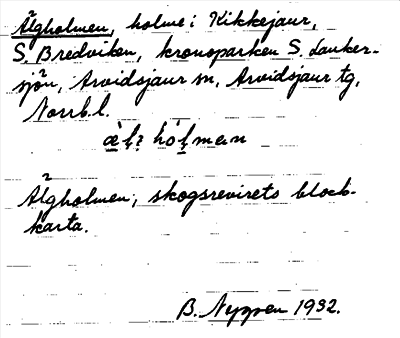 Älgholmen, holme i Kikkejaur,
S. Bredviken, kronoparken S. Lanker-
sjön, Arvidsjaur sn, Arvidsjaur tg,
Norrb.l.
Älgholmen, skogsrevirets block-
karta.
B. Nyppen 1932.